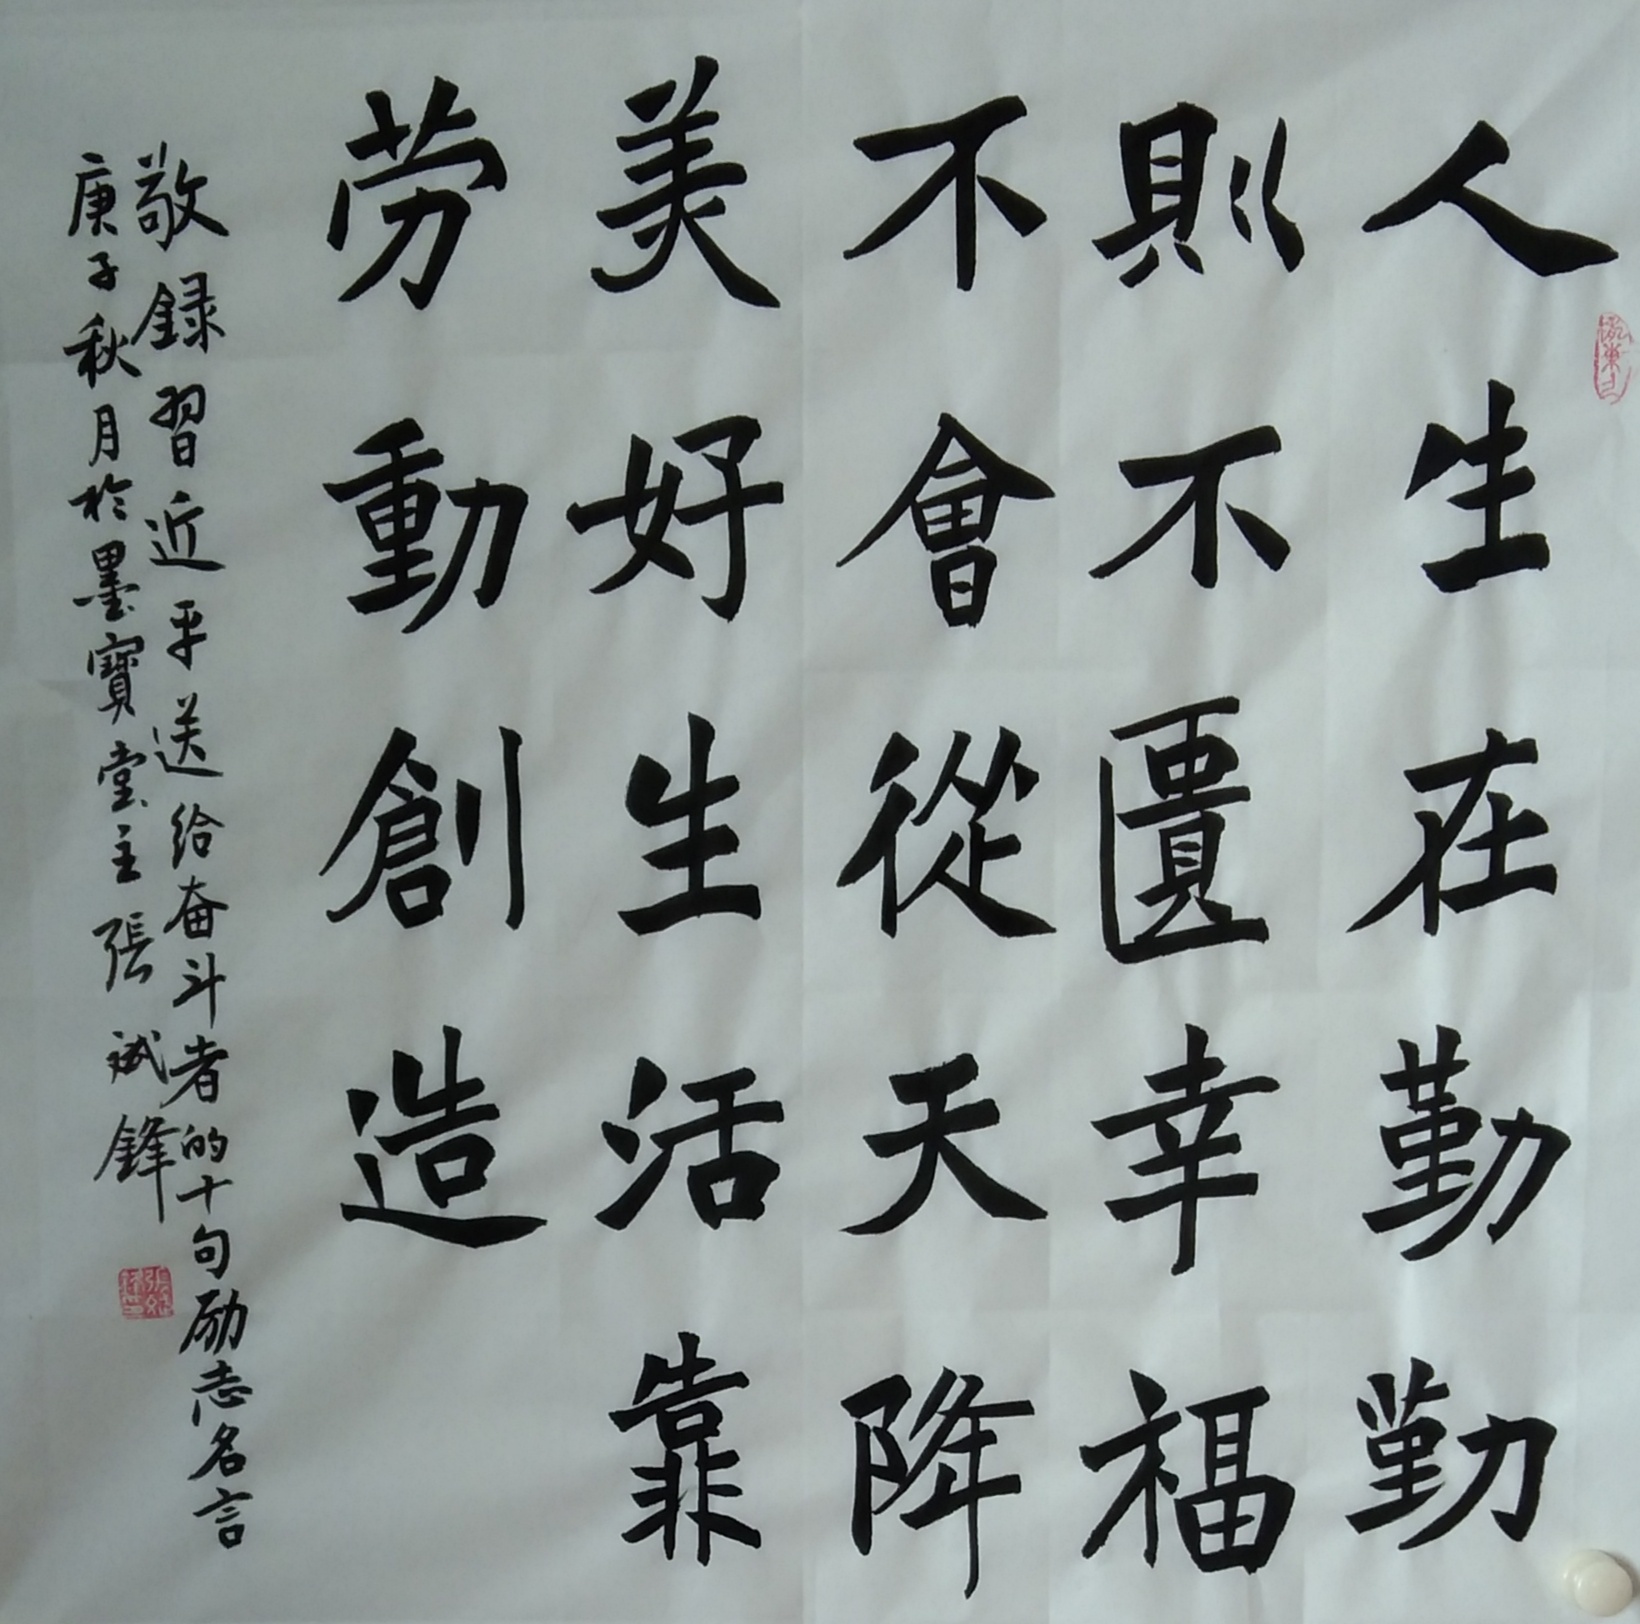 人生在勤勤
則不匱幸福
不會從天降
美好生活靠
劳動創造
敬録習近平送给奋斗者的十句励志名言
庚子秋月於墨寳堂主張斌鋒